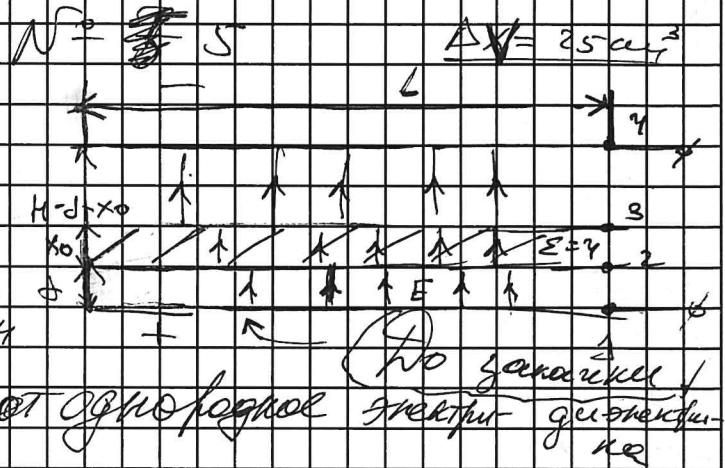 № 5 ΔV = 25 см³
−
L
4
H-d-x₀ 3
x₀ ε=4 2
d E
+ До закачки
от однородное электри- диэлектри-
ка